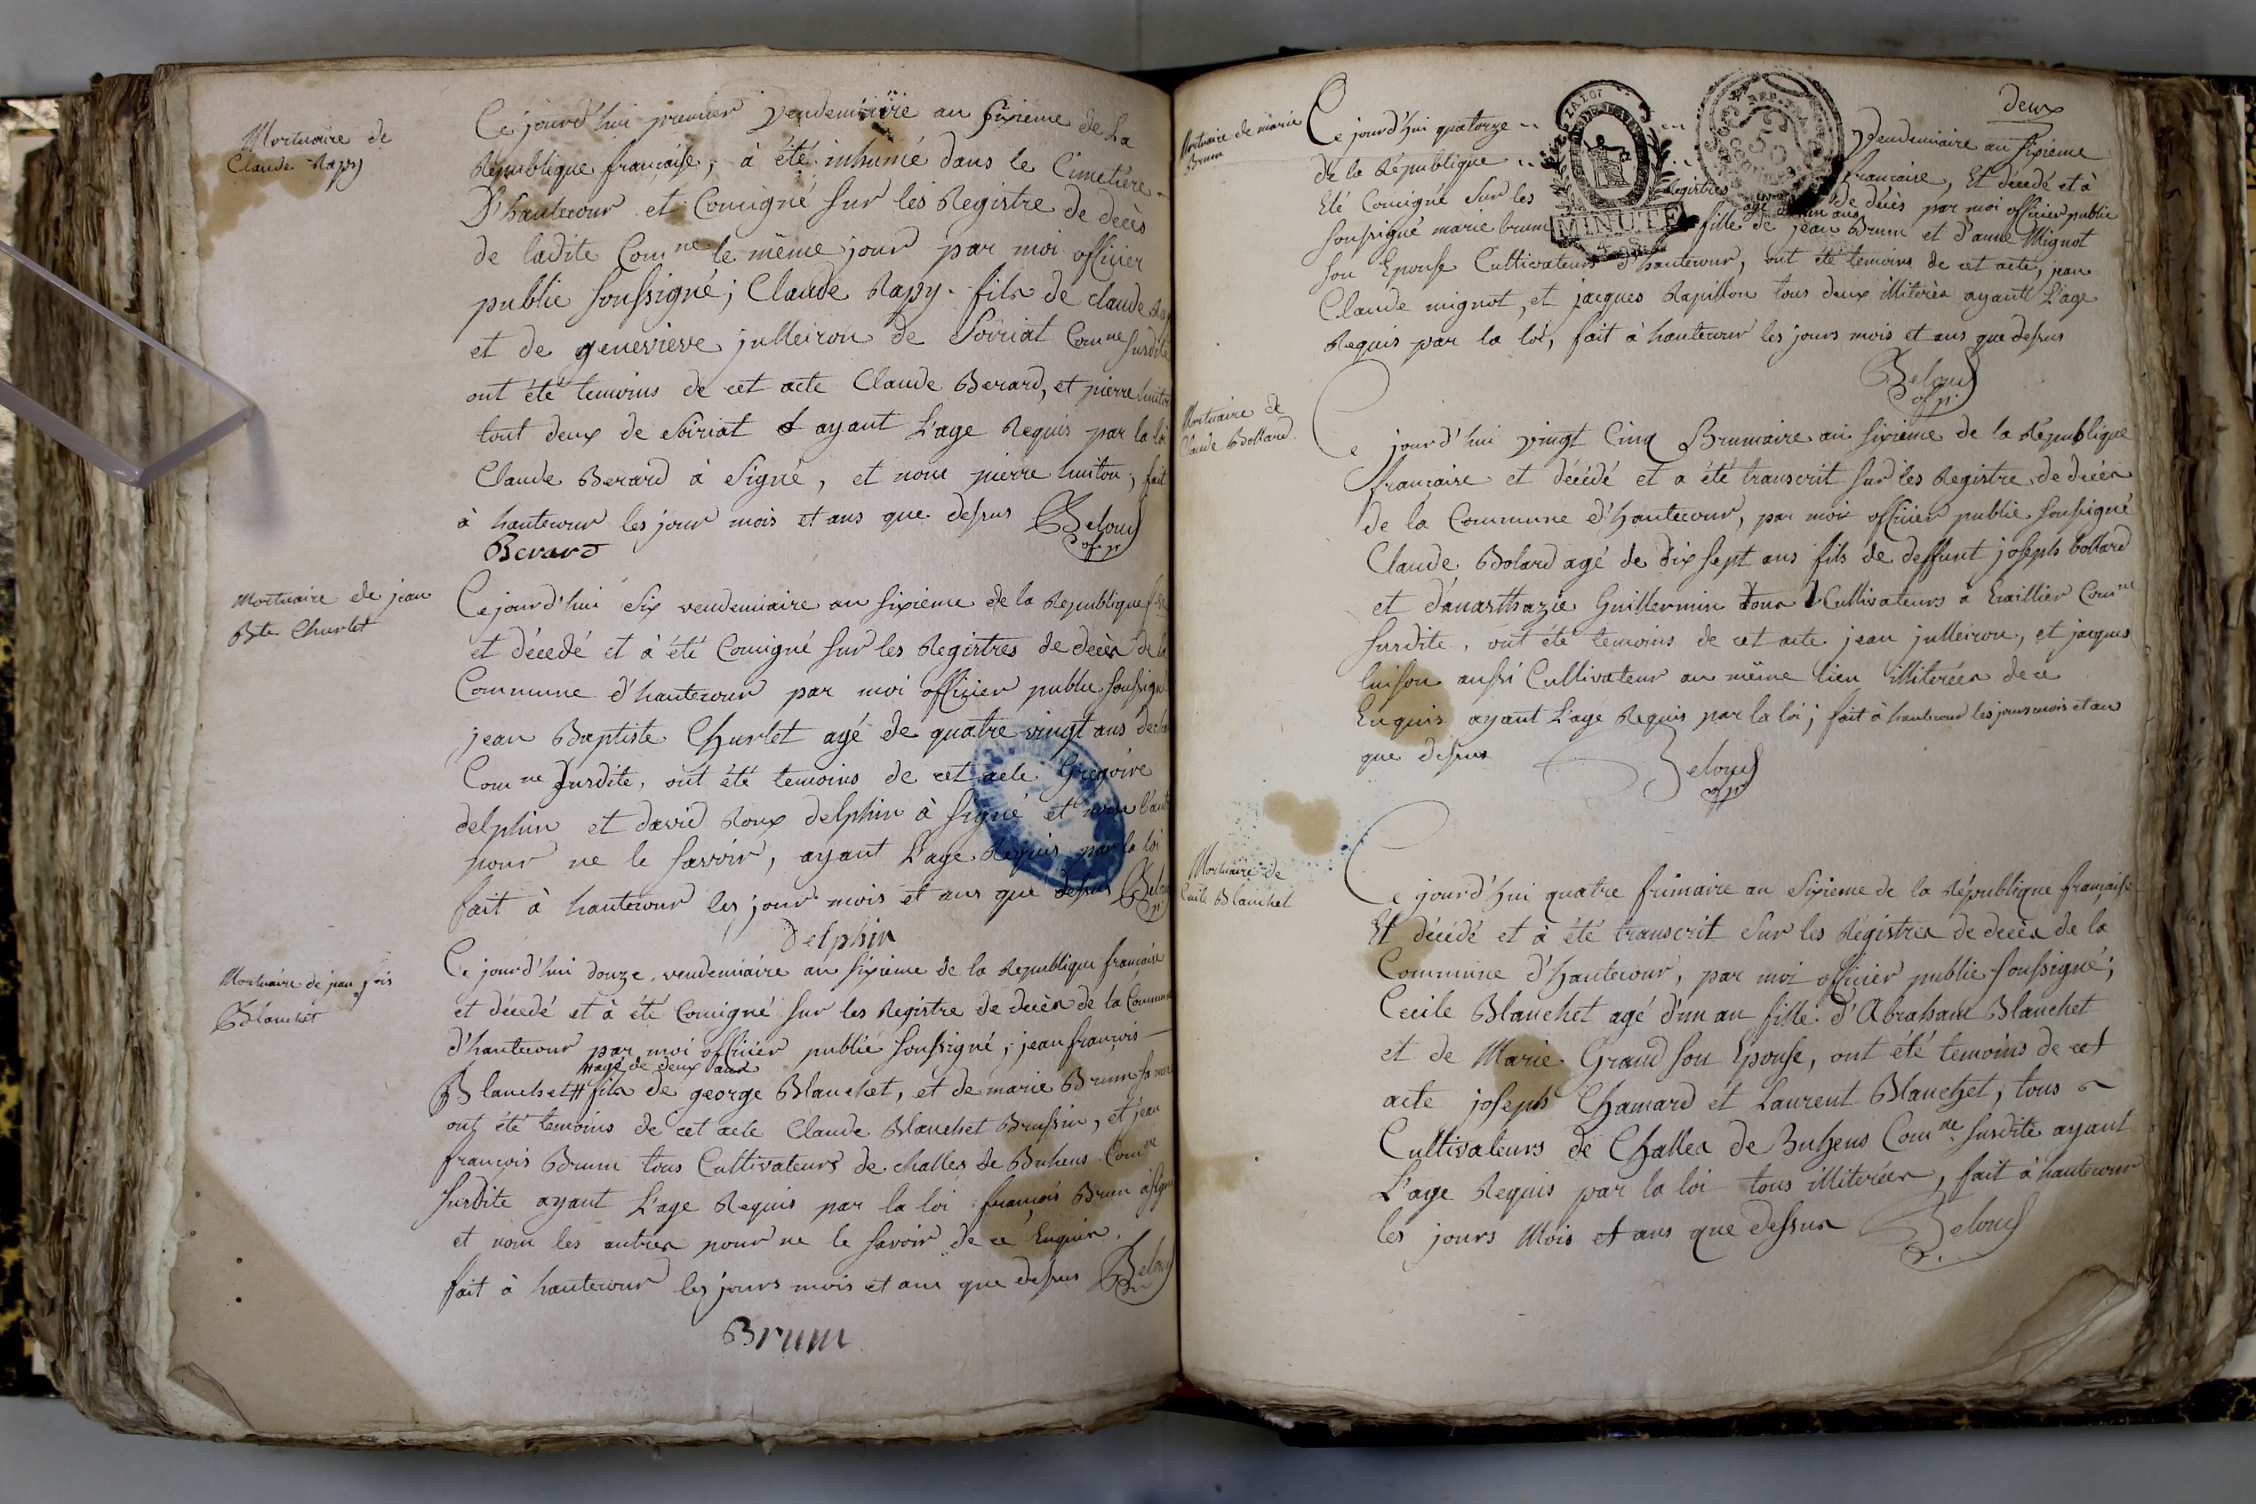 Mortuaire de
Claude Rapy
Ce jourd'hui premier vendemiaire an sixieme de La
Republique française, à été inhumé dans le Cimetière
D'hautecour et Consigné sur les Registre de decès
de ladite Com.ne le même jour par moi officier
public soussigné; Claude Rapy fils de claude
et de genevieve julleiron de Soiriat Com.ne susdite
ont été temoins de cet acte Claude Berard, et pierre
tout deux de Soiriat & ayant L'age Requis par la loi
Claude Berard à signé, et non pierre luiton; fait
à hautecour les jour mois et ans que dessus
Berard
Mortuaire de jean
Bte Churlet
Ce jourd'hui six vendemiaire an sixieme de la Republique
et décedé et à été Consigné sur les Registres de decès de la
Commune d'hautecour par moi officier public soussigné
jean Baptiste Churlet agé de quatre vingt ans de
Com.ne susdite, ont été temoins de cet acte Gregoire
delphin et david Roux delphin à signé et non
pour ne le savoir, ayant L'age Requis par la loi
fait à hautecour les jour mois et ans que dessus
Delphin
Mortuaire de jean fois
Blanchet
Ce jourd'hui douze vendemiaire an sixieme de la Republique française
et décedé et à été Consigné sur les Registre de decès de la Commune
d'hautecour par moi officier public soussigné; jean françois
# agé de deux ans
Blanchet # fils de george Blanchet, et de marie Brunn sa
ont été temoins de cet acte Claude Blanchet Brussin, et jean
françois Brunn tous Cultivateurs de challes de Buhens Com.ne
susdite ayant L'age Requis par la loi françois Brun a signé
et non les autres pour ne le savoir de ce Enquis,
fait à hautecour les jours mois et ans que dessus
Brunn
deux
Mortuaire de marie
Brunn
Ce jourd'hui quatorze Vendemiaire an sixieme
de la Republique française, Et décedé et à
Eté Consigné sur les Registres de décès par moi officier public
soussigné marie brunn fille de jean Brunn et d'anne Mignot
son Epouse Cultivateurs d'hautecour, ont été temoins de cet acte, jean
Claude mignot, et jacques Rapillon tous deux illiterés ayantt L'age
Requis par la loi, fait à hautecour les jours mois et ans que dessus
MINUTE
Mortuaire de
Claude Bollard
Ce jourd'hui vingt Cinq Brumaire an sixieme de la République
française et décédé et a été transcrit sur les Registre de decès
de la Commune d'hautecour, par moi officier public soussigné
Claude Bolard agé de dix sept ans fils de deffunt joseph bollard
et d'anasthazie Guillermin Cultivateurs a Com.ne
susdite, ont été temoins de cet acte jean julleiron, et jacques
luison aussi Cultivateur au même lieu illiterées de ce
Enquis ayant L'age Requis par la loi; fait à hautecour les jours mois et an
que dessus
Mortuaire de
Cecile Blanchet
Ce jourd'hui quatre frimaire an Sixieme de la République française
Et décédé et à été transcrit sur les Régistres de decès de la
Commune d'hautecour, par moi officier public soussigné;
Cecile Blanchet agé d'un an fille d'Abraham Blanchet
et de Marie Grand son Epouse, ont été temoins de cet
acte joseph Chamard et Laurent Blanchet; tous
Cultivateurs de Challes de Buhens Com.ne susdite ayant
L'age Requis par la loi tous illiterées, fait à hautecour
les jours Mois et ans que dessus